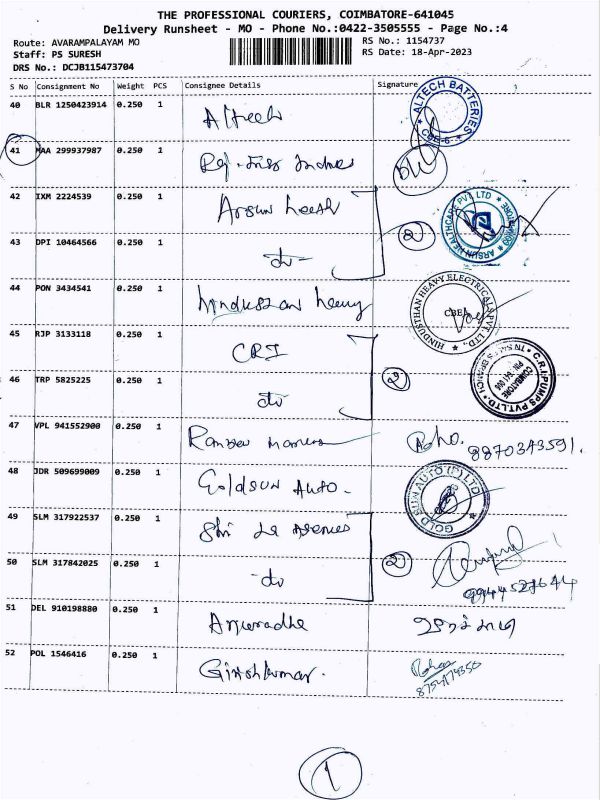 THE PROFESSIONAL COURIERS, COIMBATORE-641045
Delivery Runsheet - MO - Phone No.:0422-3505555 - Page No.:4
Route: AVARAMPALAYAM MO
RS No.: 1154737
Staff: PS SURESH
RS Date: 18-Apr-2023
DRS No.: DCJB115473704
S No Consignment No Weight PCS Consignee Details Signature
40 BLR 1250423914 0.250 1 Altech
ALTECH BATTERIES CBE-6
41 MAA 299937987 0.250 1
42 IXM 2224539 0.250 1 Arsun
2
ARSUN HEALTHCARE PVT LTD
43 DPI 10464566 0.250 1 do
44 PON 3434541 0.250 1 Hindustan heavy
HINDUSTHAN HEAVY ELECTRICALS PVT. LTD.
45 RJP 3133118 0.250 1 CRI
C.R.I PUMPS PVT.LTD. COIMBATORE
46 TRP 5825225 0.250 1 do
2
47 VPL 941552900 0.250 1
8870343591.
48 JDR 509699009 0.250 1 Goldsun Auto.
GOLD SUN AUTO (P) LTD
49 SLM 317922537 0.250 1 Shri
2
50 SLM 317842025 0.250 1 do
51 DEL 910198880 0.250 1 Anuradha
52 POL 1546416 0.250 1 Girishkumar.
1